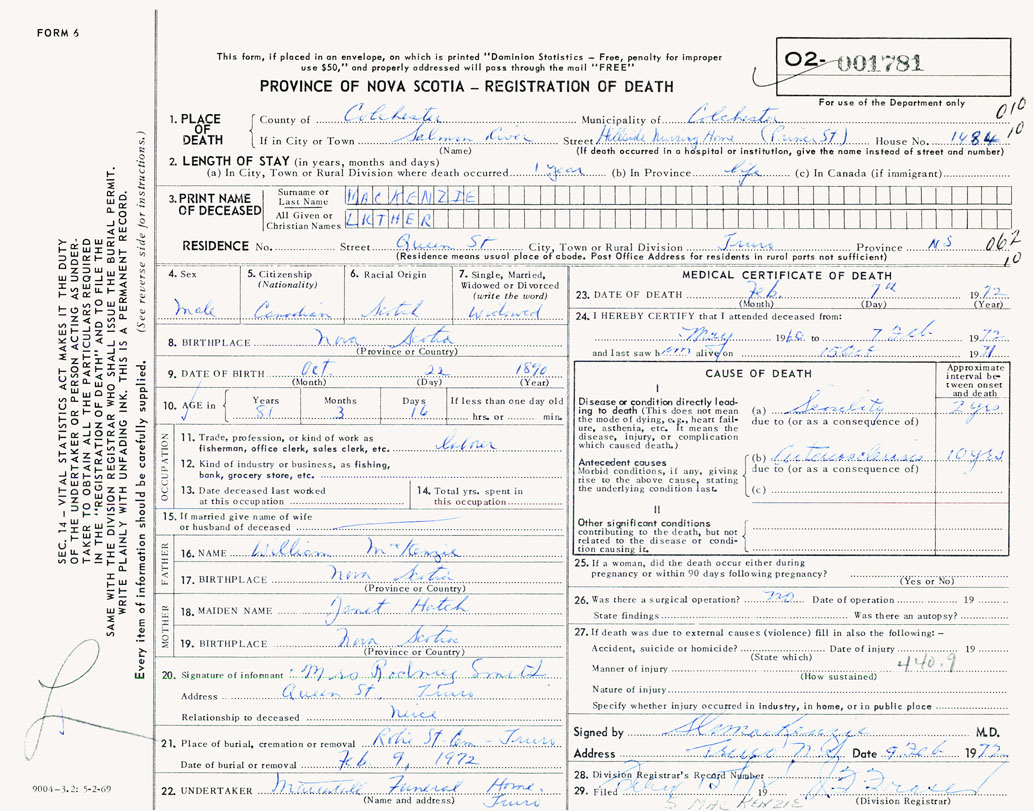 FORM 6
This form, if placed in an envelope, on which is printed "Dominion Statistics – Free, penalty for improper
use $50," and properly addressed will pass through the mail "FREE"
O2- 001781
For use of the Department only
PROVINCE OF NOVA SCOTIA – REGISTRATION OF DEATH
010
10
1. PLACE OF DEATH
County of Colchester Municipality of Colchester
If in City or Town Salmon River Street Hillside Nursing Home (Prince St.) House No. 1484
(Name) (If death occurred in a hospital or institution, give the name instead of street and number)
2. LENGTH OF STAY (in years, months and days)
(a) In City, Town or Rural Division where death occurred 1 year (b) In Province life (c) In Canada (if immigrant)
3. PRINT NAME OF DECEASED
Surname or Last Name MACKENZIE
All Given or Christian Names LUTHER
RESIDENCE No. Street Queen St City, Town or Rural Division Truro Province NS 062
10
(Residence means usual place of abode. Post Office Address for residents in rural parts not sufficient)
4. Sex
Male
5. Citizenship
(Nationality)
Canadian
6. Racial Origin
Scotch
7. Single, Married,
Widowed or Divorced
(write the word)
Widowed
8. BIRTHPLACE Nova Scotia
(Province or Country)
9. DATE OF BIRTH Oct 22 1890
(Month) (Day) (Year)
10. AGE in
Years Months Days If less than one day old
81 3 16 hrs. or min.
OCCUPATION
11. Trade, profession, or kind of work as
fisherman, office clerk, sales clerk, etc. Laborer
12. Kind of industry or business, as fishing,
bank, grocery store, etc.
13. Date deceased last worked
at this occupation
14. Total yrs. spent in
this occupation
15. If married give name of wife
or husband of deceased
FATHER
16. NAME William McKenzie
17. BIRTHPLACE Nova Scotia
(Province or Country)
MOTHER
18. MAIDEN NAME Janet Hatch
19. BIRTHPLACE Nova Scotia
(Province or Country)
20. Signature of informant Mrs Rodney Smith
Address Queen St. Truro
Relationship to deceased Neice
21. Place of burial, cremation or removal Robie St. Cem - Truro
Date of burial or removal Feb 9, 1972
22. UNDERTAKER Funeral Home
Truro
(Name and address)
MEDICAL CERTIFICATE OF DEATH
23. DATE OF DEATH Feb. 7th 1972
(Month) (Day) (Year)
24. I HEREBY CERTIFY that I attended deceased from:
May 1960 to 7 Feb 1972
and last saw him alive on 15 Oct 1971
CAUSE OF DEATH
Approximate
interval be-
tween onset
and death
I
Disease or condition directly lead-
ing to death (This does not mean
the mode of dying, e.g., heart fail-
ure, asthenia, etc. It means the
disease, injury, or complication
which caused death.)
(a) Senility 2 yrs
due to (or as a consequence of)
Antecedent causes
Morbid conditions, if any, giving
rise to the above cause, stating
the underlying condition last.
(b) Arteriosclerosis 10 yrs
due to (or as a consequence of)
(c)
II
Other significant conditions
contributing to the death, but not
related to the disease or condi-
tion causing it.
25. If a woman, did the death occur either during
pregnancy or within 90 days following pregnancy?
(Yes or No)
26. Was there a surgical operation? no Date of operation 19
State findings Was there an autopsy?
27. If death was due to external causes (violence) fill in also the following: –
Accident, suicide or homicide? Date of injury 19
(State which)
440.9
Manner of injury
(How sustained)
Nature of injury
Specify whether injury occurred in industry, in home, or in public place
Signed by MacKenzie M.D.
Address Truro N.S. Date 9 Feb 1972
28. Division Registrar's Record Number
29. Filed 19
(Division Registrar)
MACKENZIE
SEC. 14 – VITAL STATISTICS ACT MAKES IT THE DUTY
OF THE UNDERTAKER OR PERSON ACTING AS UNDER-
TAKER TO OBTAIN ALL THE PARTICULARS REQUIRED
IN THE "REGISTRATION OF DEATH" AND TO FILE THE
SAME WITH THE DIVISION REGISTRAR WHO SHALL ISSUE THE BURIAL PERMIT.
WRITE PLAINLY WITH UNFADING INK. THIS IS A PERMANENT RECORD.
Every item of information should be carefully supplied. (See reverse side for instructions.)
9004-3.2: 5-2-69